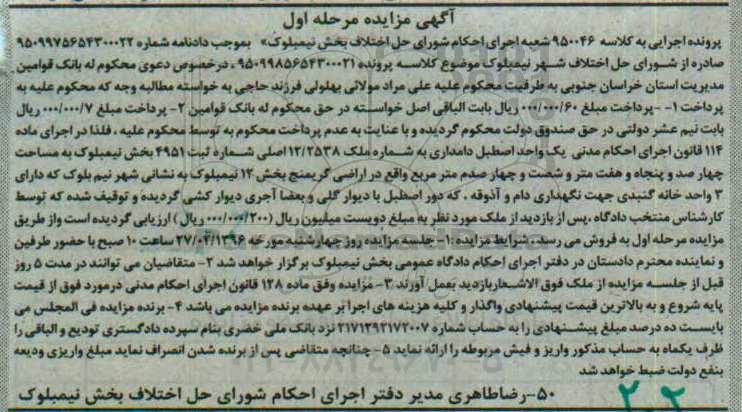 آگهی مزایده مرحله اول
پرونده اجرایی به کلاسه ۹۵۰۰۴۶ شعبه اجرای احکام شورای حل اختلاف بخش نیمبلوک» بموجب دادنامه شماره ۹۵۰۹۹۷۵۶۵۴۳۰۰۰۲۲
صادره از شورای حل اختلاف شهر نیمبلوک موضوع کلاسه پرونده ۹۵۰۹۹۸۵۶۵۴۳۰۰۰۲۱ ، درخصوص دعوی محکوم له بانک قوامین
مدیریت استان خراسان جنوبی به طرفیت محکوم علیه علی مراد مولائی بهلولی فرزند حاجی به خواسته مطالبه وجه که محکوم علیه به
پرداخت ۱- -پرداخت مبلغ ۰۰۰/۰۰۰/۶۰ ریال بابت الباقی اصل خواسته در حق محکوم له بانک قوامین ۲- پرداخت مبلغ ۰۰۰/۰۰۰/۷ ریال
بابت نیم عشر دولتی در حق صندوق دولت محکوم گردیده و با عنایت به عدم پرداخت محکوم به توسط محکوم علیه ، فلذا در اجرای ماده
۱۱۴ قانون اجرای احکام مدنی یک واحد اصطبل دامداری به شماره ملک ۱۲/۲۵۳۸ اصلی شماره ثبت ۴۹۵۱ بخش نیمبلوک به مساحت
چهار صد و پنجاه و هفت متر و شصت و چهار صدم متر مربع واقع در اراضی گریمنج بخش ۱۲ نیمبلوک به نشانی شهر نیم بلوک که دارای
۳ واحد خانه گنبدی جهت نگهداری دام و آذوقه ، که دور اصطبل با دیوار گلی و بعضا آجری دیوار کشی گردیده و توقیف شده که توسط
کارشناس منتخب دادگاه ،پس از بازدید از ملک مورد نظر به مبلغ دویست میلیون ریال (۰۰۰/۰۰۰/۲۰۰ ریال ) ارزیابی گردیده است واز طریق
مزایده مرحله اول به فروش می رسد. شرایط مزایده :۱-جلسه مزایده روز چهارشنبه مورخه ۲۷/۰۲/۱۳۹۶ ساعت ۱۰ صبح با حضور طرفین
و نماینده محترم دادستان در دفتر اجرای احکام دادگاه عمومی بخش نیمبلوک برگزار خواهد شد ۲- متقاضیان می توانند در مدت ۵ روز
قبل از جلسه مزایده از ملک فوق الاشعاربازدید بعمل آورند ۳- مزایده وفق ماده ۱۲۸ قانون اجرای احکام مدنی درمورد فوق از قیمت
پایه شروع و به بالاترین قیمت پیشنهادی واگذار و کلیه هزینه های اجرا بر عهده برنده مزایده می باشد ۴- برنده مزایده فی المجلس می
بایست ده درصد مبلغ پیشنهادی را به حساب شماره ۲۱۷۱۲۹۲۱۷۲۰۰۷ نزد بانک ملی خضری بنام سپرده دادگستری تودیع و الباقی را
ظرف یکماه به حساب مذکور واریز و فیش مربوطه را ارائه نماید ۵- چنانچه متقاضی پس از برنده شدن انصراف نماید مبلغ واریزی ودیعه
بنفع دولت ضبط خواهد شد
۵۰-رضاطاهری مدیر دفتر اجرای احکام شورای حل اختلاف بخش نیمبلوک